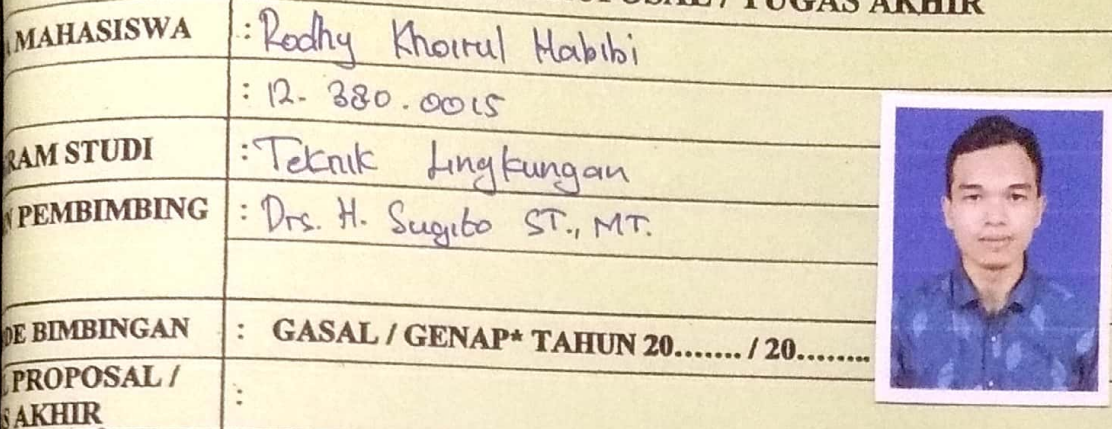 TUGAS AKHIR
MAHASISWA : Rodhy Khoirul Habibi
: 12. 380. 0015
RAM STUDI : Teknik Lingkungan
PEMBIMBING : Drs. H. Sugito ST., MT.
DE BIMBINGAN : GASAL / GENAP* TAHUN 20....... / 20........
PROPOSAL /
AKHIR :